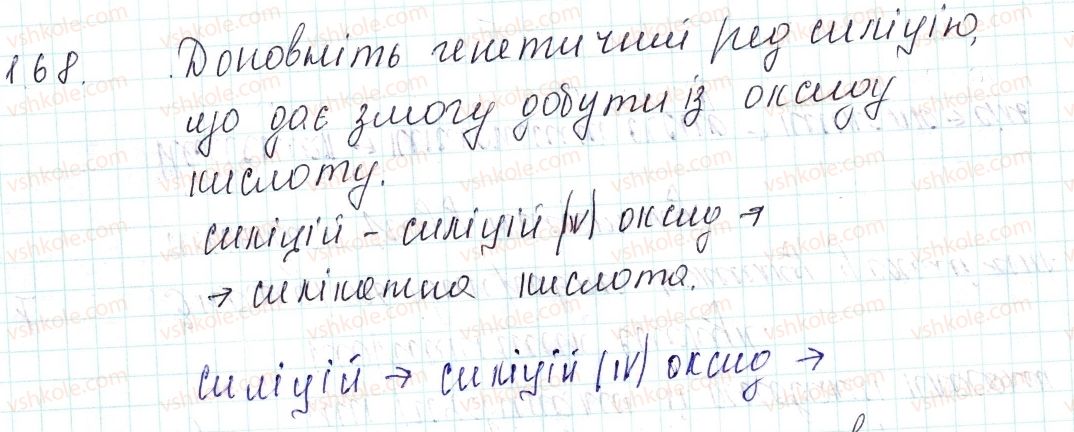 168. Доповніть генетичний ряд силіцію,
що дає змогу добути із оксиду
кислоту.
силіцій - силіцій (IV) оксид →
→ силікатна кислота.
силіцій → силіцій (IV) оксид →